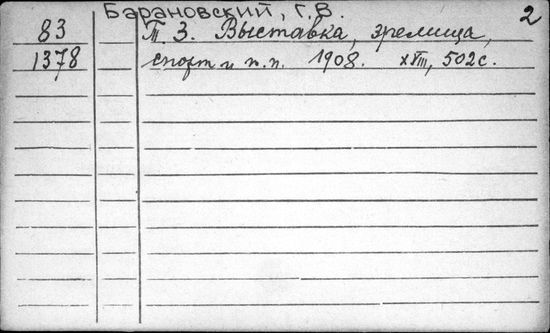 Барановский, Г.В.
2
83 Т. 3. Выставка, зрелища,
1378 спорт и т.п. 1908. XVIII, 502 с.